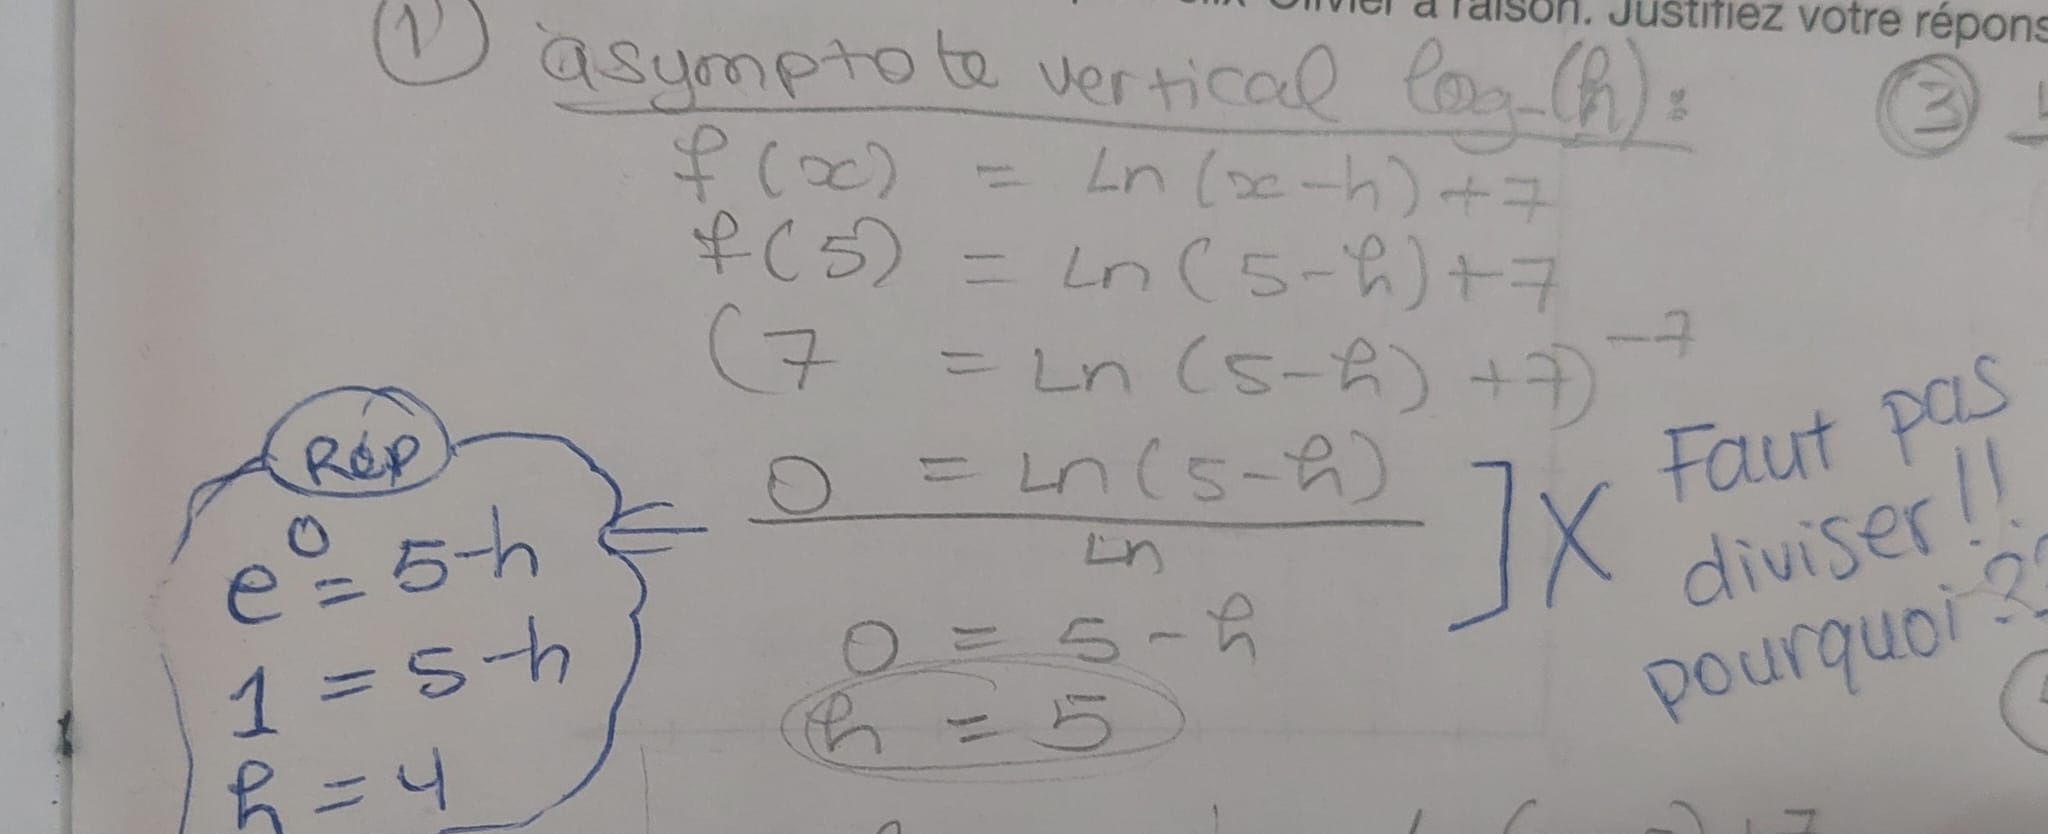 Olivier a raison. Justifiez votre répons
① asymptote vertical log-(h):
③
f(x) = Ln (x-h) +7
f(5) = Ln (5-h) +7
(7 = Ln (5-h) +7) -7
0 = Ln (5-h)
Ln
0 = 5-h
h = 5
] X Faut pas
diviser!!
pourquoi??
Rép
e⁰ = 5-h
1 = 5-h
h = 4